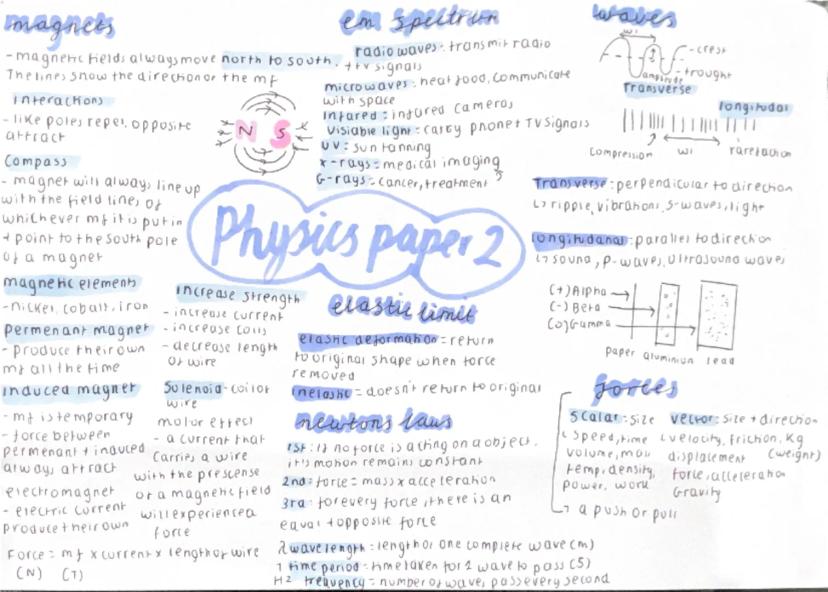 magnets
- magnetic fields always move north to south.
The lines show the direction of the mf
interactions
- like poles repel, opposite
attract
N S
Compass
- magnet will always line up
with the field lines of
whichever mf it is put in
+ point to the south pole
of a magnet
magnetic elements
- nickel, cobalt, iron
permenant magnet
- produce their own
mf all the time
induced magnet
- mf is temporary
- force between
permenant + induced
always attract
electromagnet
- electric current
produce their own
increase strength
- increase current
- increase coils
- decrease length
of wire
Solenoid - coil of
wire
motor effect
- a current that
carries a wire
with the prescense
of a magnetic field
will experience a
force
Force = mf x current x length of wire
(N) (T)
em spectrum
radio waves: transmit radio
+ tv signals
microwaves: heat food, communicate
with space
infared: infared cameras
visiable light: carry phone + TV signals
UV: sun tanning
x-rays: medical imaging
G-rays: cancer, treatment
Physics paper 2
elastic limit
elastic deformation = return
to original shape when force
removed
inelastic = doesn't return to original
newtons laws
1st: if no force is acting on a object,
it's motion remains constant
2nd: force = mass x acceleration
3rd: for every force, there is an
equal + opposite force
λ wavelength: length of one complete wave (m)
T time period: time taken for 1 wave to pass (s)
Hz frequency = number of waves pass every second
waves
wl
crest
trought
amplitude
Transverse
longitudal
compression
wl
rarefaction
Transverse: perpendicular to direction
↳ ripple, vibrations, s-waves, light
longitudanal: parallel to direction
↳ sound, p-waves, ultrasound waves
(+) Alpha
(-) Beta
(0) Gamma
paper aluminium lead
forces
Scalar: size
↳ speed, time
volume, mass
temp, density,
power, work
vector: size + direction
↳ velocity, friction, kg
displacement (weight)
force, acceleration
gravity
→ a push or pull